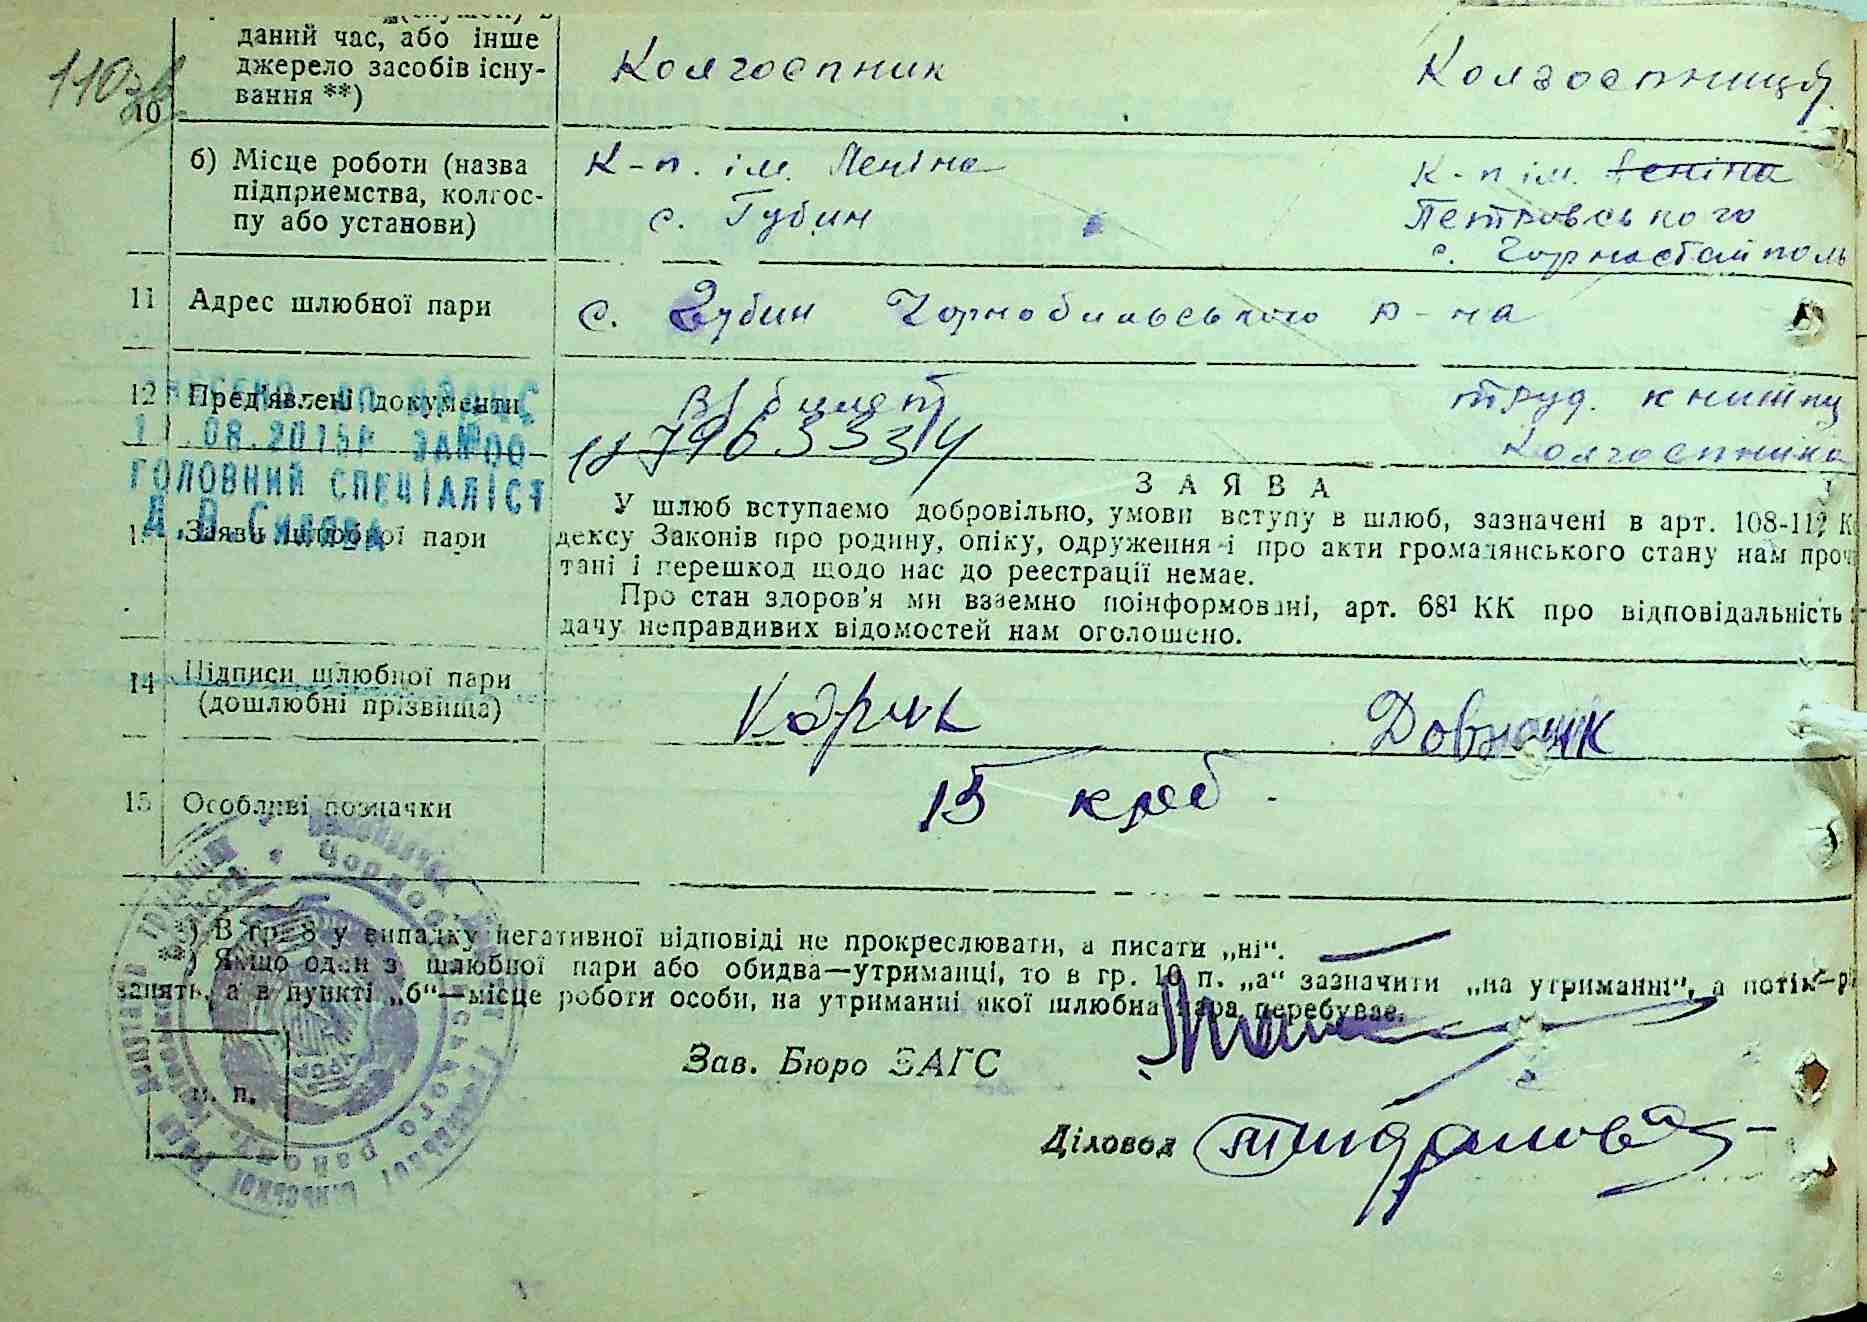 110зв
10
даний час, або інше
джерело засобів існу-
вання **)
Колгоспник
Колгоспниця
б) Місце роботи (назва
підприємства, колгос-
пу або установи)
К-п. ім. Леніна
с. Губин
К-п ім. Леніна
Петровського
с. Горностайполь
11 Адрес шлюбної пари
с. Губин Чорнобильського р-на
12 Пред'явлені документи
в/білет
труд. книжка
колгоспника
08.2015р
ГОЛОВНИЙ СПЕЦІАЛІСТ
ЗАЯВА
Заява шлюбної пари
У шлюб вступаємо добровільно, умови вступу в шлюб, зазначені в арт. 108-112 К
дексу Законів про родину, опіку, одруження і про акти громадянського стану нам проч
тані і перешкод щодо нас до реєстрації немає.
Про стан здоров'я ми взаємно поінформовані, арт. 68¹ КК про відповідальність
дачу неправдивих відомостей нам оголошено.
14 Підписи шлюбної пари
(дошлюбні прізвища)
Корчик
15 Особливі позначки
15 крб.
) В гр. 8 у випадку негативної відповіді не прокреслювати, а писати „ні“.
) Якщо один з шлюбної пари або обидва—утриманці, то в гр. 10 п. „а“ зазначити „на утриманні“, а потім—р
занять, а в пункті „б“—місце роботи особи, на утриманні якої шлюбна пара перебуває.
Зав. Бюро ЗАГС
м. п.
Діловод